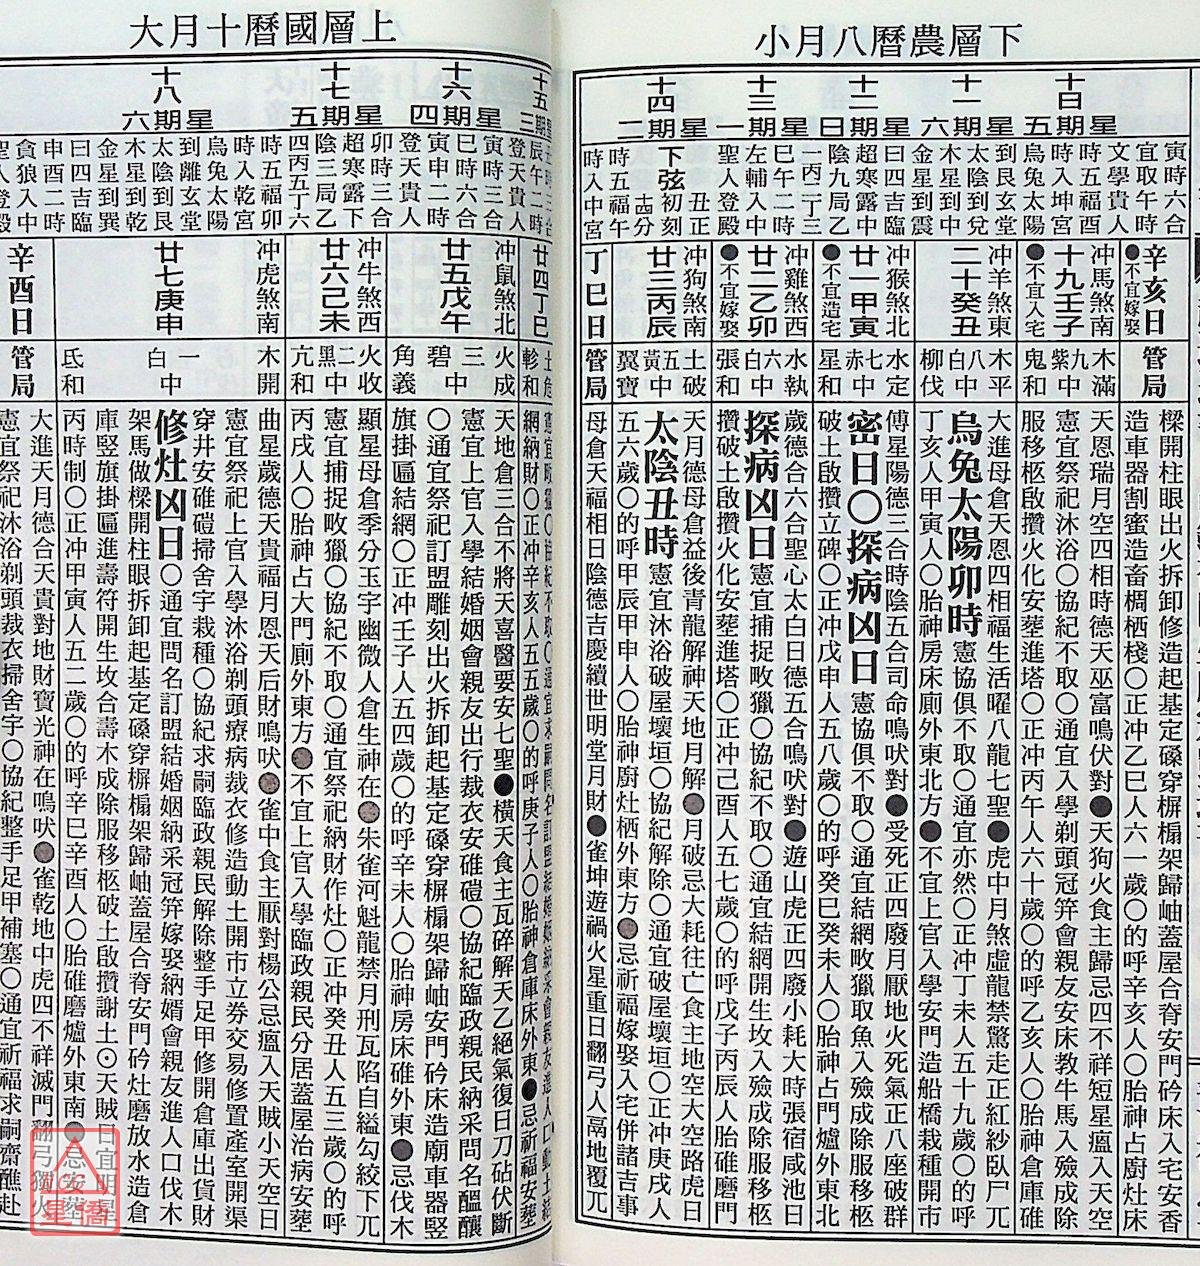 下層農曆八月小
寅時六合
宜取午時
文學貴人
辛亥日
●不宜嫁娶
管局
樑開柱眼出火拆卸修造起基定磉穿屏搧架歸岫蓋屋合脊安門砛床入宅安香
造車器割蜜造畜椆栖棧〇正冲乙巳人六一歲〇的呼辛亥人〇胎神占廚灶床
十日
星期五
時五福酉
時入坤宮
烏兔太陽
冲馬煞南
十九壬子
●不宜入宅
木滿
九紫中
鬼和
天恩瑞月空四相時德天巫富鳴伏對●天狗火食主歸忌四不祥短星瘟入天空
憲宜祭祀沐浴〇協紀不取〇通宜入學剃頭冠笄會親友安床教牛馬入殮成除
服移柩啟攢火化安葬進塔〇正冲丙午人六十歲〇的呼乙亥人〇胎神倉庫碓
十一
星期六
到艮玄堂
太陰到兌
木星到坤
金星到震
冲羊煞東
二十癸丑
木平
八白中
柳伐
大進母倉天恩四相福生活曜八龍七聖●虎中月煞虛龍禁驚走正紅紗臥尸兀
烏兔太陽卯時憲協俱不取〇通宜亦然〇正冲丁未人五十九歲〇的呼
丁亥人甲寅人〇胎神房床廁外東北方●不宜上官入學安門造船橋栽種開市
十二
星期日
日四吉臨
超寒露中
陰九局乙
一丙二丁三
冲猴煞北
廿一甲寅
●不宜造宅
水定
七赤中
星和
傅星陽德三合時陰五合司命鳴吠對●受死正四廢月厭地火死氣正八座破群
密日〇探病凶日憲協俱不取〇通宜結網畋獵取魚入殮成除服移柩
破土啟攢立碑〇正冲戊申人五八歲〇的呼癸巳癸未人〇胎神占門爐外東北
十三
星期一
巳午二時
左輔入中
聖人登殿
冲雞煞西
廿二乙卯
●不宜嫁娶
水執
六白中
張和
歲德合六合聖心太白日德五合鳴吠對●遊山虎正四廢小耗大時張宿咸池日
探病凶日憲宜捕捉畋獵〇協紀不取〇通宜結網開生坟入殮成除服移柩
攢破土啟攢火化安葬進塔〇正冲己酉人五七歲〇的呼戊子丙辰人胎碓磨門
十四
星期二
下弦初刻
丑正
時五福午
時入中宮
冲狗煞南
廿三丙辰
丁巳日
土破
五黃中
翼寶
管局
天月德母倉益後青龍解神天地月解●月破忌大耗往亡食主地空大空路虎日
太陰丑時憲宜沐浴破屋壞垣〇協紀解除〇通宜破屋壞垣〇正冲庚戌人
五六歲〇的呼甲辰甲申人〇胎神廚灶栖外東方●忌祈福嫁娶入宅併諸吉事
母倉天福相日陰德吉慶續世明堂月財●雀坤遊禍火星重日翻弓人鬲地覆兀
上層國曆十月大
十五
辰午二時
登天貴人
廿四丁巳
土危
軫和
十六
星期四
寅時三合
巳時六合
寅申二時
登天貴人
冲鼠煞北
廿五戊午
火成
三碧中
角義
天地倉三合不將天喜醫要安七聖●橫天食主瓦碎解天乙絕氣復日刀砧伏斷
憲宜上官入學結婚姻會親友出行裁衣安碓磑〇協紀臨政親民納采問名醞釀
〇通宜祭祀訂盟雕刻出火拆卸起基定磉穿屏搧架歸岫安門砛床造廟車器竪
旗掛匾結網〇正冲壬子人五四歲〇的呼辛未人〇胎神房床碓外東●忌伐木
十七
星期五
卯時三合
超寒露下
陰三局乙
四丙五丁六
冲牛煞西
廿六己未
火收
二黑中
亢和
顯星母倉季分玉宇幽微人倉生神在●朱雀河魁龍禁月刑瓦陷自縊勾絞下兀
憲宜捕捉畋獵〇協紀不取〇通宜祭祀納財作灶〇正冲癸丑人五三歲〇的呼
丙戌人〇胎神占大門廁外東方●不宜上官入學臨政親民分居蓋屋治病安葬
十八
星期六
時五福卯
時入乾宮
烏兔太陽
到離玄堂
太陰到艮
木星到乾
金星到巽
日四吉臨
申酉二時
貪狼入中
聖人登殿
冲虎煞南
廿七庚申
辛酉日
木開
一白中
氐和
管局
曲星歲德天貴福月恩天后財鳴吠●雀中食主厭對楊公忌瘟入天賊小天空日
憲宜祭祀上官入學沐浴剃頭療病裁衣修造動土開市立券交易修置產室開渠
穿井安碓磑掃舍宇栽種〇協紀求嗣臨政親民解除整手足甲修開倉庫出貨財
修灶凶日〇通宜問名訂盟結婚姻納采冠笄嫁娶納婿會親友進人口伐木
架馬做樑開柱眼拆卸起基定磉穿屏搧架歸岫蓋屋合脊安門砛灶磨放水造倉
庫竪旗掛匾進壽符開生坟合壽木成除服移柩破土啟攢謝土⊙天賊日宜明星
丙時制〇正冲甲寅人五二歲〇的呼辛巳辛酉人〇胎碓磨爐外東南●忌安葬
大進天月德合天貴對地財寶光神在鳴吠●雀乾地中虎四不祥滅門翻弓獨火
憲宜祭祀沐浴剃頭裁衣掃舍宇〇協紀整手足甲補塞〇通宜祈福求嗣齋醮赴
星僑